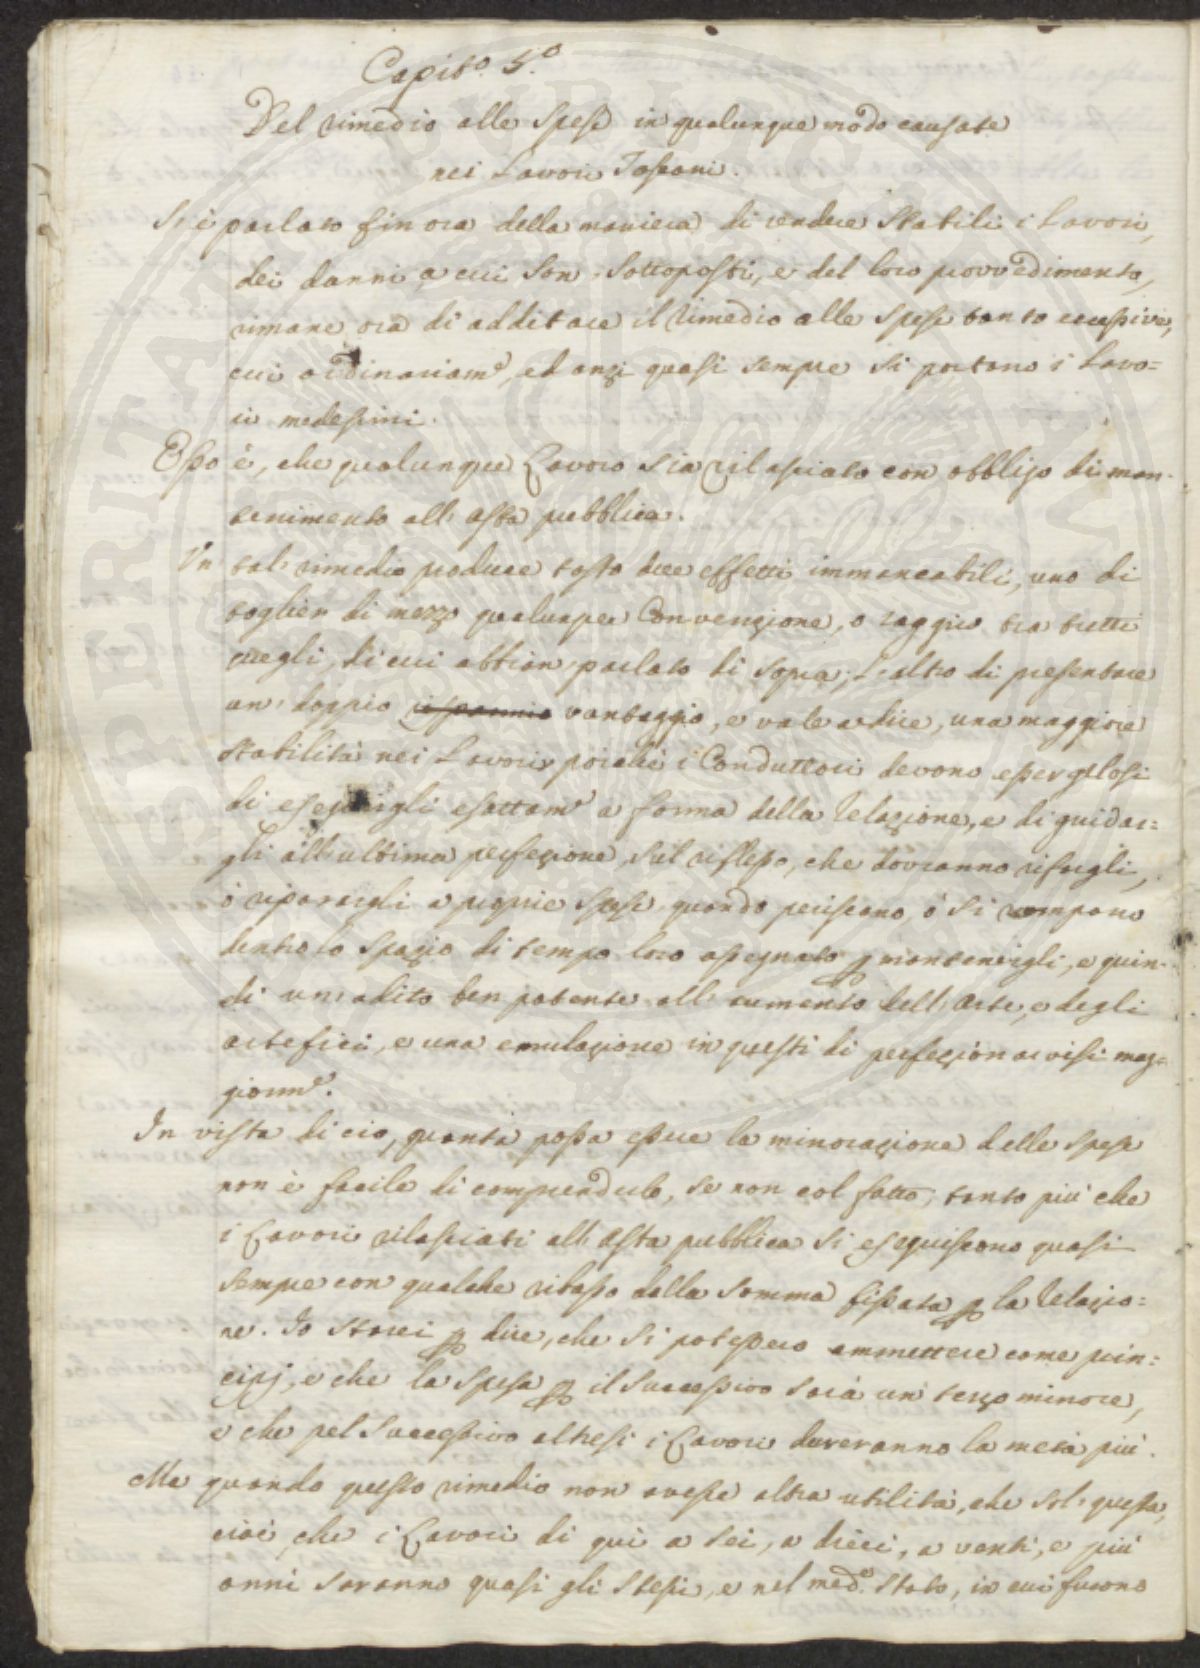 Capito. 5.o
Del rimedio alle Spese in qualunque modo causate
nei Lavori Toscani.
Si è parlato fin ora della maniera di rendere Stabili i Lavori,
dei danni a cui son sottoposti, e del loro provvedimento,
rimane ora di additare il rimedio alle Spese tanto eccessive,
cui ordinariame, ed anzi quasi sempre si portano i Lavo=
ri medesimi.
Esso è, che qualunque Lavoro sia rilasciato con obbligo di man-
tenimento all'asta pubblica.
Un tal' rimedio produce tosto due effetti immancabili, uno di
toglier di mezzo qualunque Convenzione, o raggiro tra tutti
quegli, di cui abbian parlato di sopra; L'altro di presentare
un' doppio risparmio vantaggio, e vale a dire, una maggiore
stabilità nei Lavori, poichè i Conduttori devono esser gelosi
di eseguirgli esattame a forma della Relazione, e di guidar=
gli all'ultima perfezione, sul riflesso, che dovranno rifargli,
ò riparargli a proprie Spese, quando periscano, ò si rompano
dentro lo spazio di tempo loro assegnato p mantenergli, e quin-
di un' adito ben potente all' aumento dell' Arte, e degli
artefici, e una emulazione in questi di perfezionarvisi mag=
giorme.
In vista di cio, quanta possa essere la minorazione delle spese
non è facile di comprenderlo, se non col fatto; tanto più che
i Lavori rilasciati all'Asta pubblica si eseguiscono quasi
sempre con qualche ribasso dalla somma fissata p la Relazio=
ne. Io starei p dire, che si potessero ammettere come prin=
cipj, e che la spesa p il successivo sarà un' terzo minore,
e che pel successivo altresì i Lavori dureranno la metà più.
Ma quando questo rimedio non avesse altra utilità, che sol' questa,
cioè, che i Lavori di qui a sei, a dieci, a venti, e più
anni saranno quasi gli stessi, e nel medo. stato, in cui furono
SPERITATI PUBLICAE